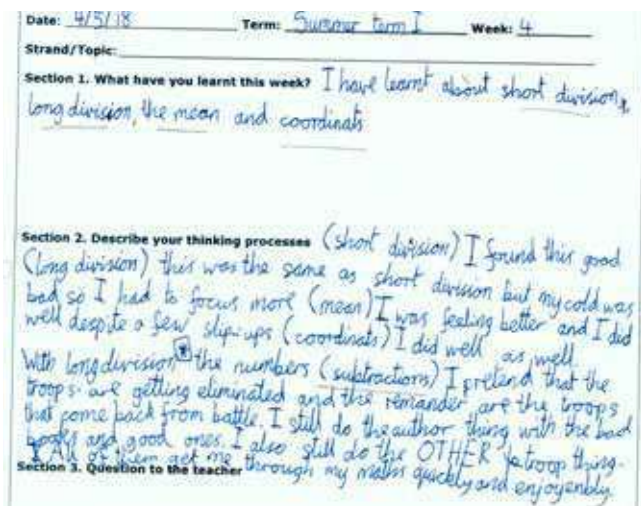 Date: 4/5/18 Term: Summer term I Week: 4
Strand/Topic:
Section 1. What have you learnt this week? I have learnt about short division,
long division, the mean and coordinats
Section 2. Describe your thinking processes (short division) I found this good
(long division) this was the same as short division but my cold was
bad so I had to focus more (mean) I was feeling better and I did
well despite a few slip-ups (coordinats) I did well as well
With long division * the numbers (subtractions) I pretend that the
troops are getting eliminated and the remander are the troops
that come back from battle. I still do the author thing with the bad
books and good ones. I also still do the OTHER troop thing.
* All of them get me through my maths quickly and enjoyenbly.
Section 3. Question to the teacher